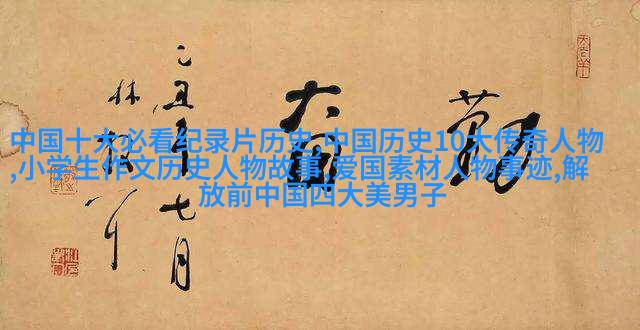 中国十大必看纪录片历史,中国历史10大传奇人物
,小学生作文历史人物故事,爱国素材人物事迹,解
放前中国四大美男子
勤
大
丑年七月
林